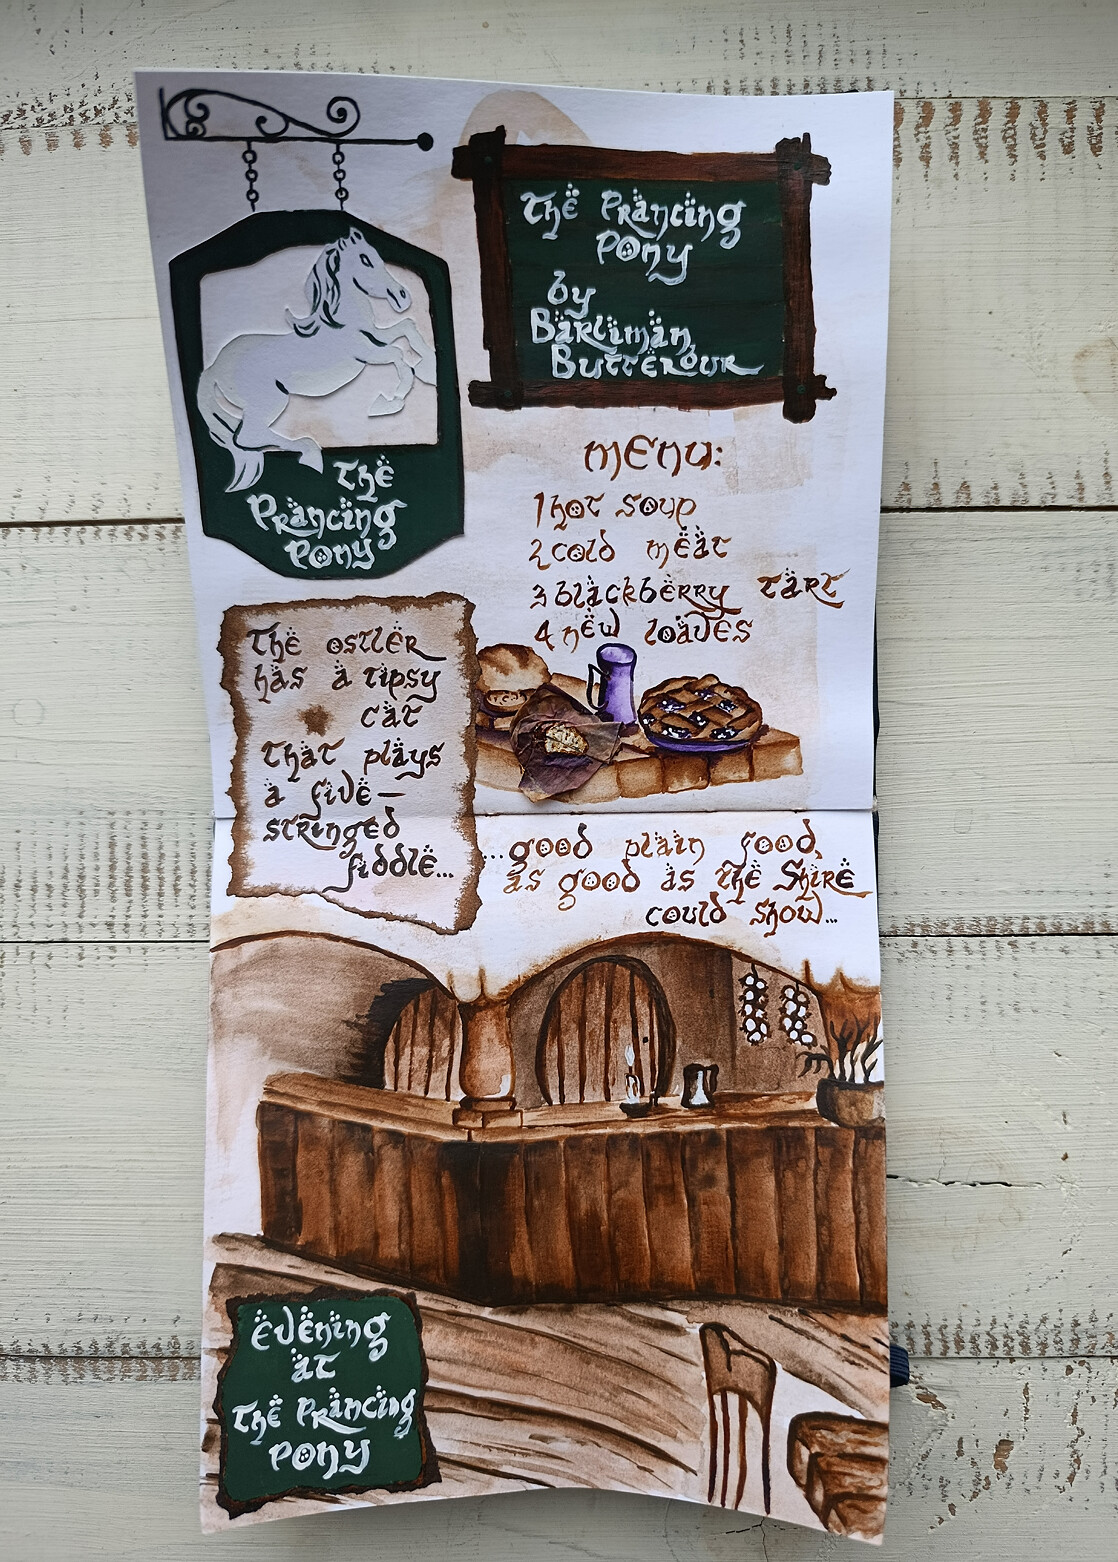 The
Prancing
Pony
The Prancing
Pony
by
Barliman
Butterbur
MENU:
1 hot soup
2 cold meat
3 blackberry tart
4 new loaves
The ostler
has a tipsy
cat
that plays
a five-
stringed
fiddle...
...good plain food,
as good as the Shire
could show...
Evening
at
The Prancing
Pony